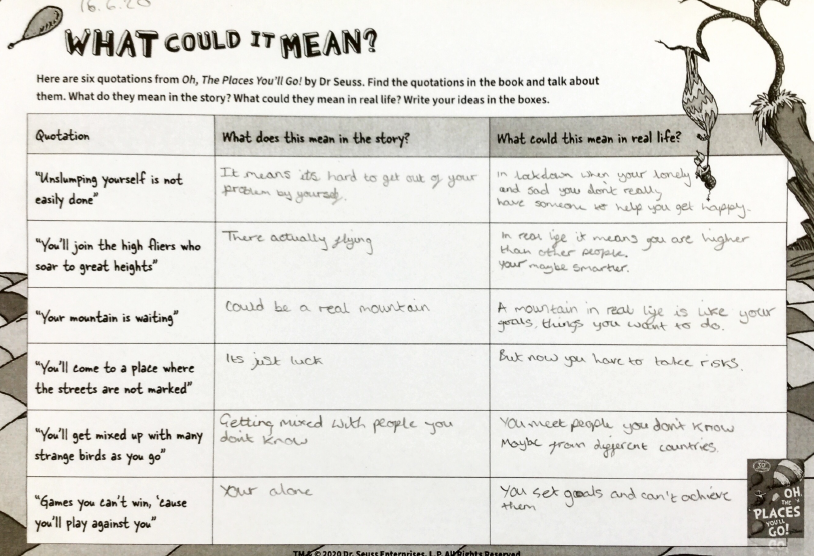 16.6.20
WHAT COULD IT MEAN?
Here are six quotations from Oh, The Places You'll Go! by Dr Seuss. Find the quotations in the book and talk about
them. What do they mean in the story? What could they mean in real life? Write your ideas in the boxes.
Quotation
What does this mean in the story?
What could this mean in real life?
"Unslumping yourself is not
easily done"
It means its hard to get out of your
problem by yourself.
In lockdown when your lonely
and sad you don't really
have someone to help you get happy.
"You'll join the high fliers who
soar to great heights"
There actually flying
In real life it means you are higher
than other people.
your maybe smarter.
"Your mountain is waiting"
Could be a real mountain
A mountain in real life is like your
goals, things you want to do.
"You'll come to a place where
the streets are not marked"
Its just luck
But now you have to take risks.
"You'll get mixed up with many
strange birds as you go"
Getting mixed with people you
don't know
You meet people you don't know
Maybe from different countries.
"Games you can't win, 'cause
you'll play against you"
Your alone
You set goals and can't achieve
them
OH,
THE
PLACES
YOU'LL
GO!
TM & © 2020 Dr. Seuss Enterprises, L.P. All Rights Reserved